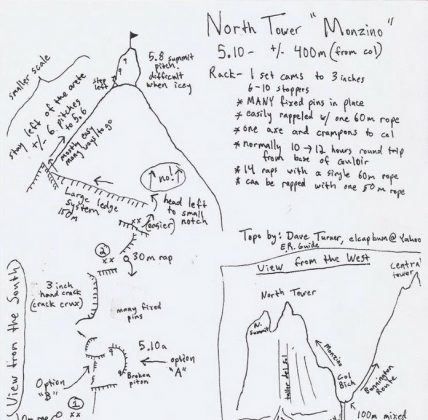 North Tower "Monzino"
5.10- +/- 400m (from col)
Rack- 1 set cams to 3 inches
6-10 stoppers
* MANY fixed pins in place
* easily rappeled w/ one 60m rope
* one axe and crampons to col
* normally 10→12 hours round trip
from base of couloir
* 14 raps with a single 60m rope
* can be rapped with one 50m rope
Topo by: Dave Turner, elcapbum@Yahoo
E.R. Guide
smaller scale
stay left of the arete
+/- 6 pitches
to 5.6
mostly easy
many rap tags
step left
? ?
5.8 summit
pitch,
difficult
when icey
Large ledge
system
150m
↑ no! ↑
head left
to small
notch
(easier)
xx
2
xx
30m rap
3 inch
hand crack
(crack crux)
many fixed
pins
5.10a
option
"A"
Broken
piton
Option
"B"
1
xx
View from the South
View from the West
Central
tower
North Tower
N.
Summit
Monzino
Col
Bich
Bonington
Route
100m mixed